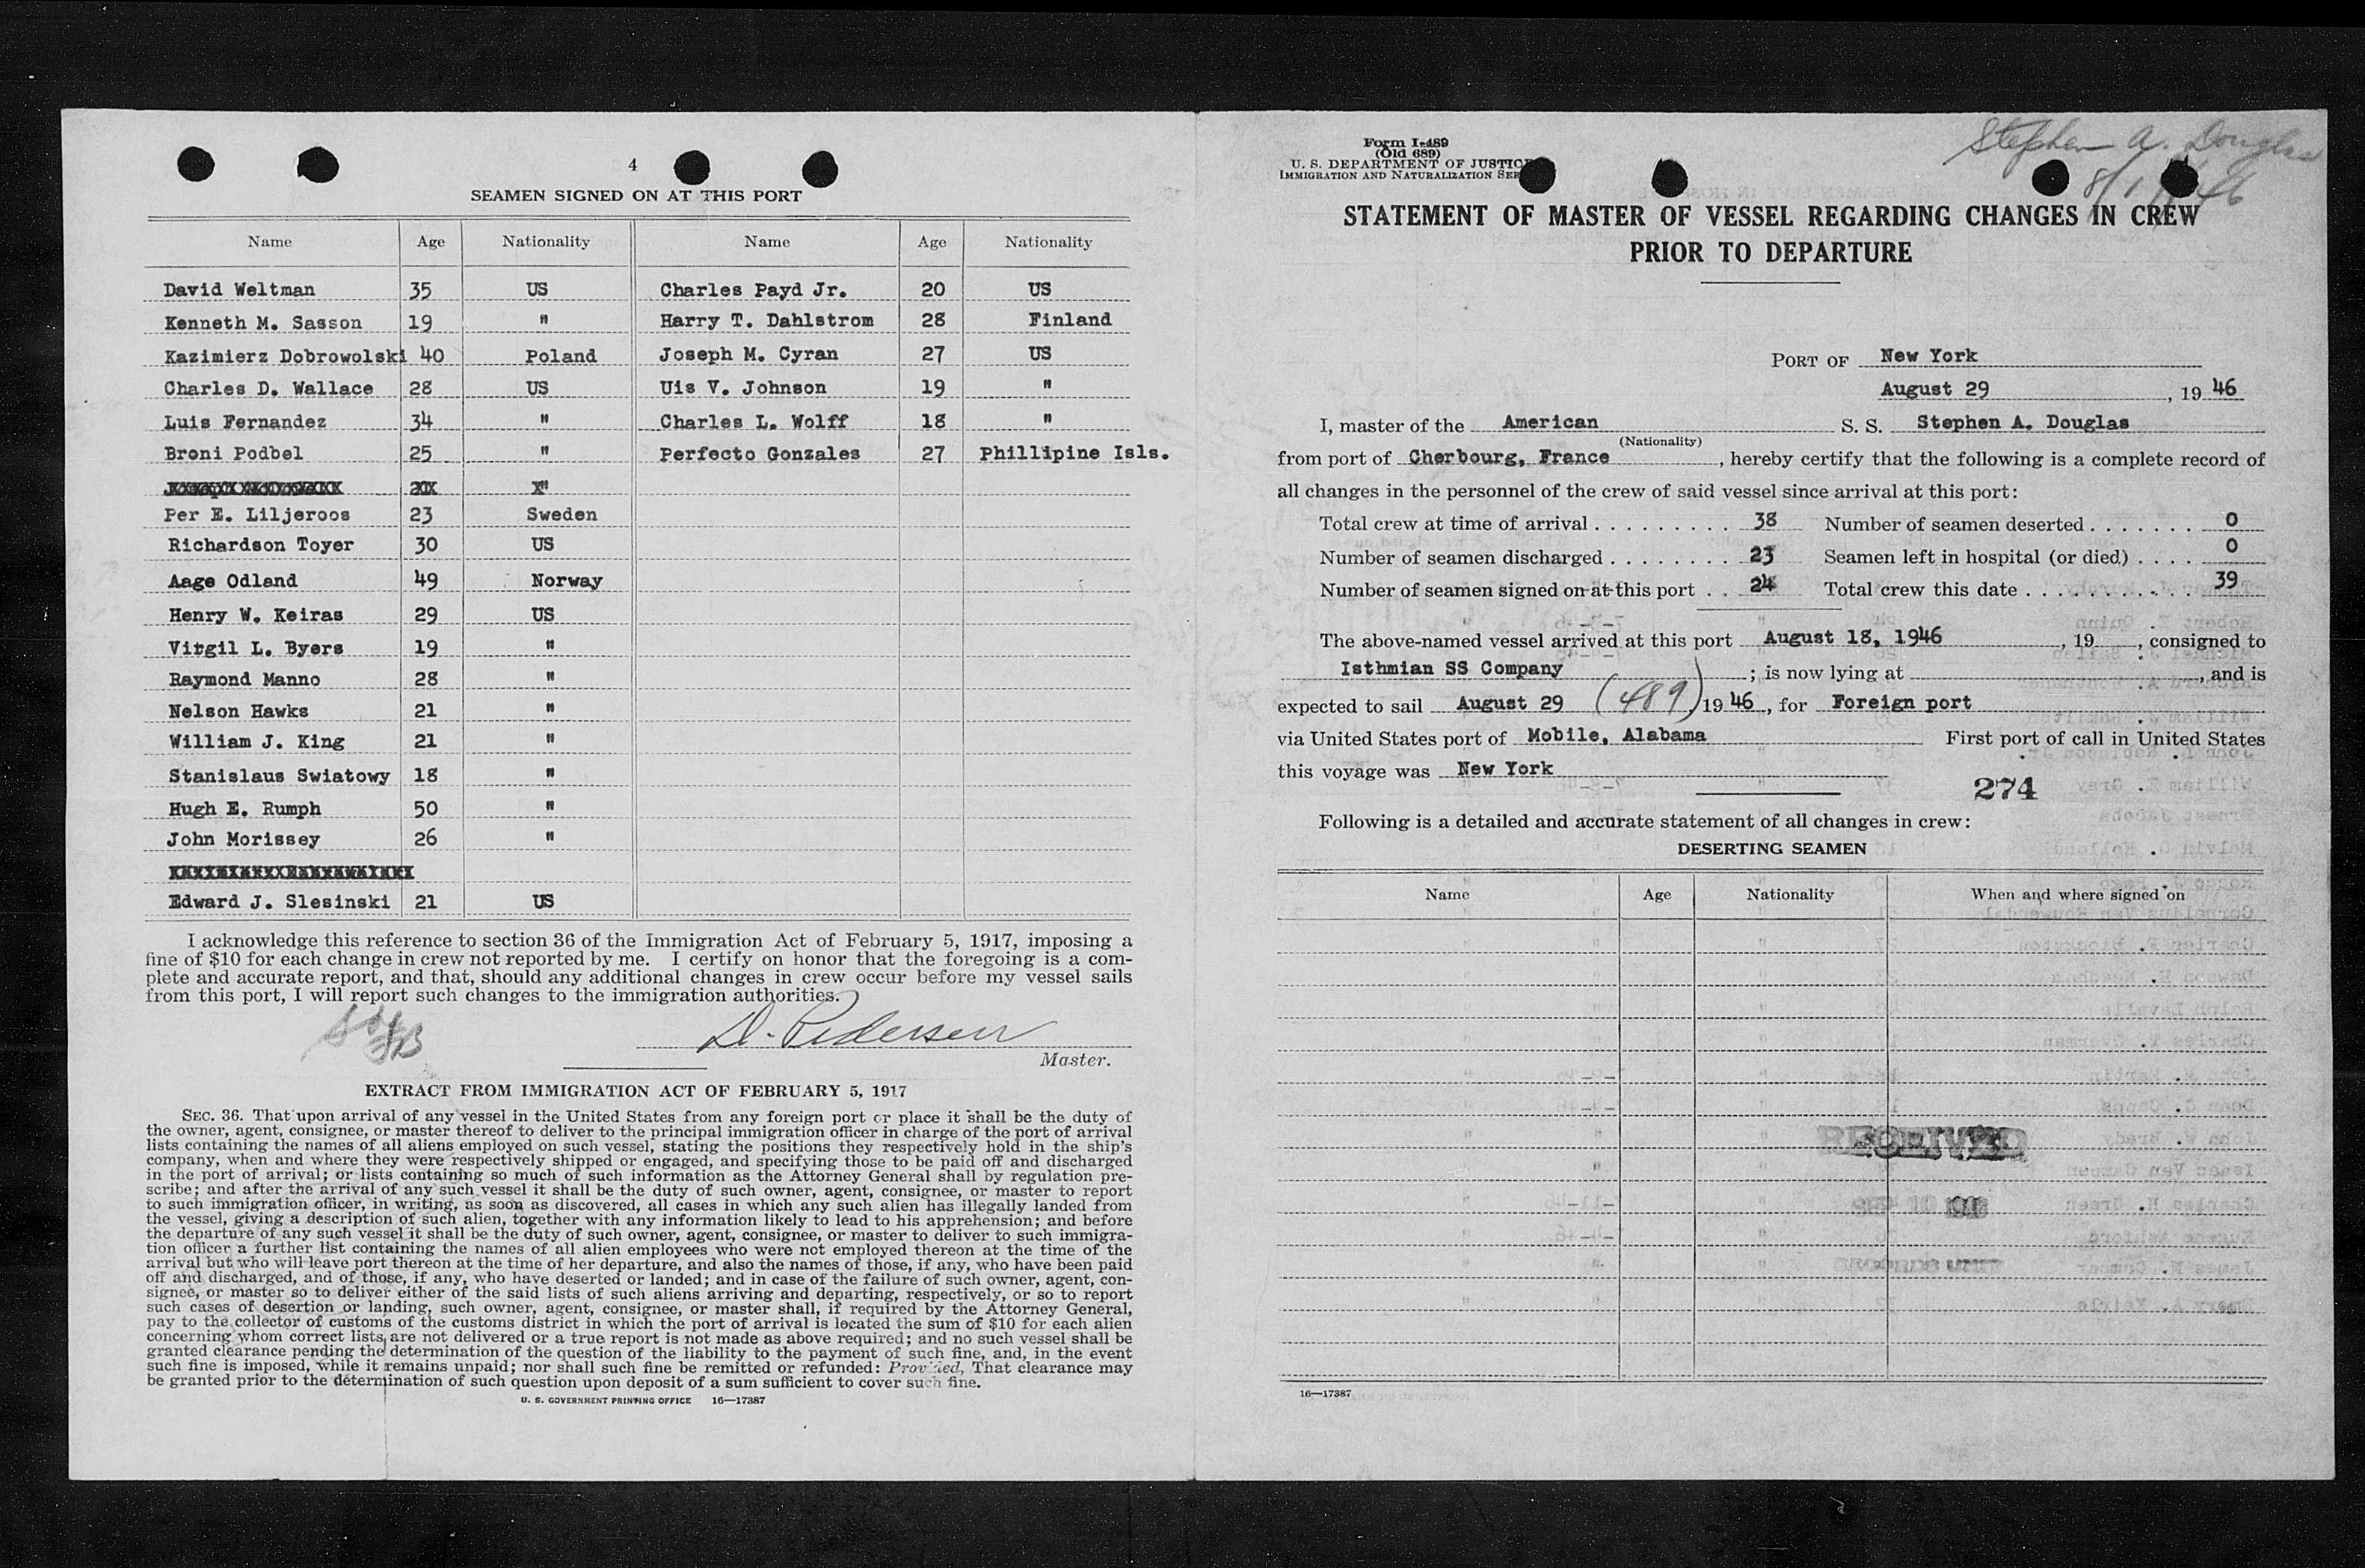 4
SEAMEN SIGNED ON AT THIS PORT
Name Age Nationality Name Age Nationality
David Weltman 35 US Charles Payd Jr. 20 US
Kenneth M. Sasson 19 " Harry T. Dahlstrom 28 Finland
Kazimierz Dobrowolski 40 Poland Joseph M. Cyran 27 US
Charles D. Wallace 28 US Uis V. Johnson 19 "
Luis Fernandez 34 " Charles L. Wolff 18 "
Broni Podbel 25 " Perfecto Gonzales 27 Phillipine Isls.
Per E. Liljeroos 23 Sweden
Richardson Toyer 30 US
Aage Odland 49 Norway
Henry W. Keiras 29 US
Virgil L. Byers 19 "
Raymond Manno 28 "
Nelson Hawks 21 "
William J. King 21 "
Stanislaus Swiatowy 18 "
Hugh E. Rumph 50 "
John Morissey 26 "
Edward J. Slesinski 21 US
I acknowledge this reference to section 36 of the Immigration Act of February 5, 1917, imposing a
fine of $10 for each change in crew not reported by me. I certify on honor that the foregoing is a com-
plete and accurate report, and that, should any additional changes in crew occur before my vessel sails
from this port, I will report such changes to the immigration authorities.
D. Pedersen
Master.
EXTRACT FROM IMMIGRATION ACT OF FEBRUARY 5, 1917
SEC. 36. That upon arrival of any vessel in the United States from any foreign port or place it shall be the duty of
the owner, agent, consignee, or master thereof to deliver to the principal immigration officer in charge of the port of arrival
lists containing the names of all aliens employed on such vessel, stating the positions they respectively hold in the ship's
company, when and where they were respectively shipped or engaged, and specifying those to be paid off and discharged
in the port of arrival; or lists containing so much of such information as the Attorney General shall by regulation pre-
scribe; and after the arrival of any such vessel it shall be the duty of such owner, agent, consignee, or master to report
to such immigration officer, in writing, as soon as discovered, all cases in which any such alien has illegally landed from
the vessel, giving a description of such alien, together with any information likely to lead to his apprehension; and before
the departure of any such vessel it shall be the duty of such owner, agent, consignee, or master to deliver to such immigra-
tion officer a further list containing the names of all alien employees who were not employed thereon at the time of the
arrival but who will leave port thereon at the time of her departure, and also the names of those, if any, who have been paid
off and discharged, and of those, if any, who have deserted or landed; and in case of the failure of such owner, agent, con-
signee, or master so to deliver either of the said lists of such aliens arriving and departing, respectively, or so to report
such cases of desertion or landing, such owner, agent, consignee, or master shall, if required by the Attorney General,
pay to the collector of customs of the customs district in which the port of arrival is located the sum of $10 for each alien
concerning whom correct lists are not delivered or a true report is not made as above required; and no such vessel shall be
granted clearance pending the determination of the question of the liability to the payment of such fine, and, in the event
such fine is imposed, while it remains unpaid; nor shall such fine be remitted or refunded: Provided, That clearance may
be granted prior to the determination of such question upon deposit of a sum sufficient to cover such fine.
U. S. GOVERNMENT PRINTING OFFICE 16—17387
Form I-489
(Old 689)
U. S. DEPARTMENT OF JUSTICE
IMMIGRATION AND NATURALIZATION SER
Stephen A. Douglas
STATEMENT OF MASTER OF VESSEL REGARDING CHANGES IN CREW
PRIOR TO DEPARTURE
PORT OF New York
August 29, 19 46
I, master of the American S. S. Stephen A. Douglas
(Nationality)
from port of Cherbourg, France, hereby certify that the following is a complete record of
all changes in the personnel of the crew of said vessel since arrival at this port:
Total crew at time of arrival . . . . . . . . . 38 Number of seamen deserted . . . . . . . 0
Number of seamen discharged . . . . . . . . 23 Seamen left in hospital (or died) . . . . 0
Number of seamen signed on at this port . . 24 Total crew this date . . . . . . . . . . . 39
The above-named vessel arrived at this port August 18, 1946, 19 , consigned to
Isthmian SS Company ; is now lying at , and is
expected to sail August 29 (489) 19 46, for Foreign port
via United States port of Mobile, Alabama First port of call in United States
this voyage was New York
274
Following is a detailed and accurate statement of all changes in crew:
DESERTING SEAMEN
Name Age Nationality When and where signed on
RECEIVED
16—17387